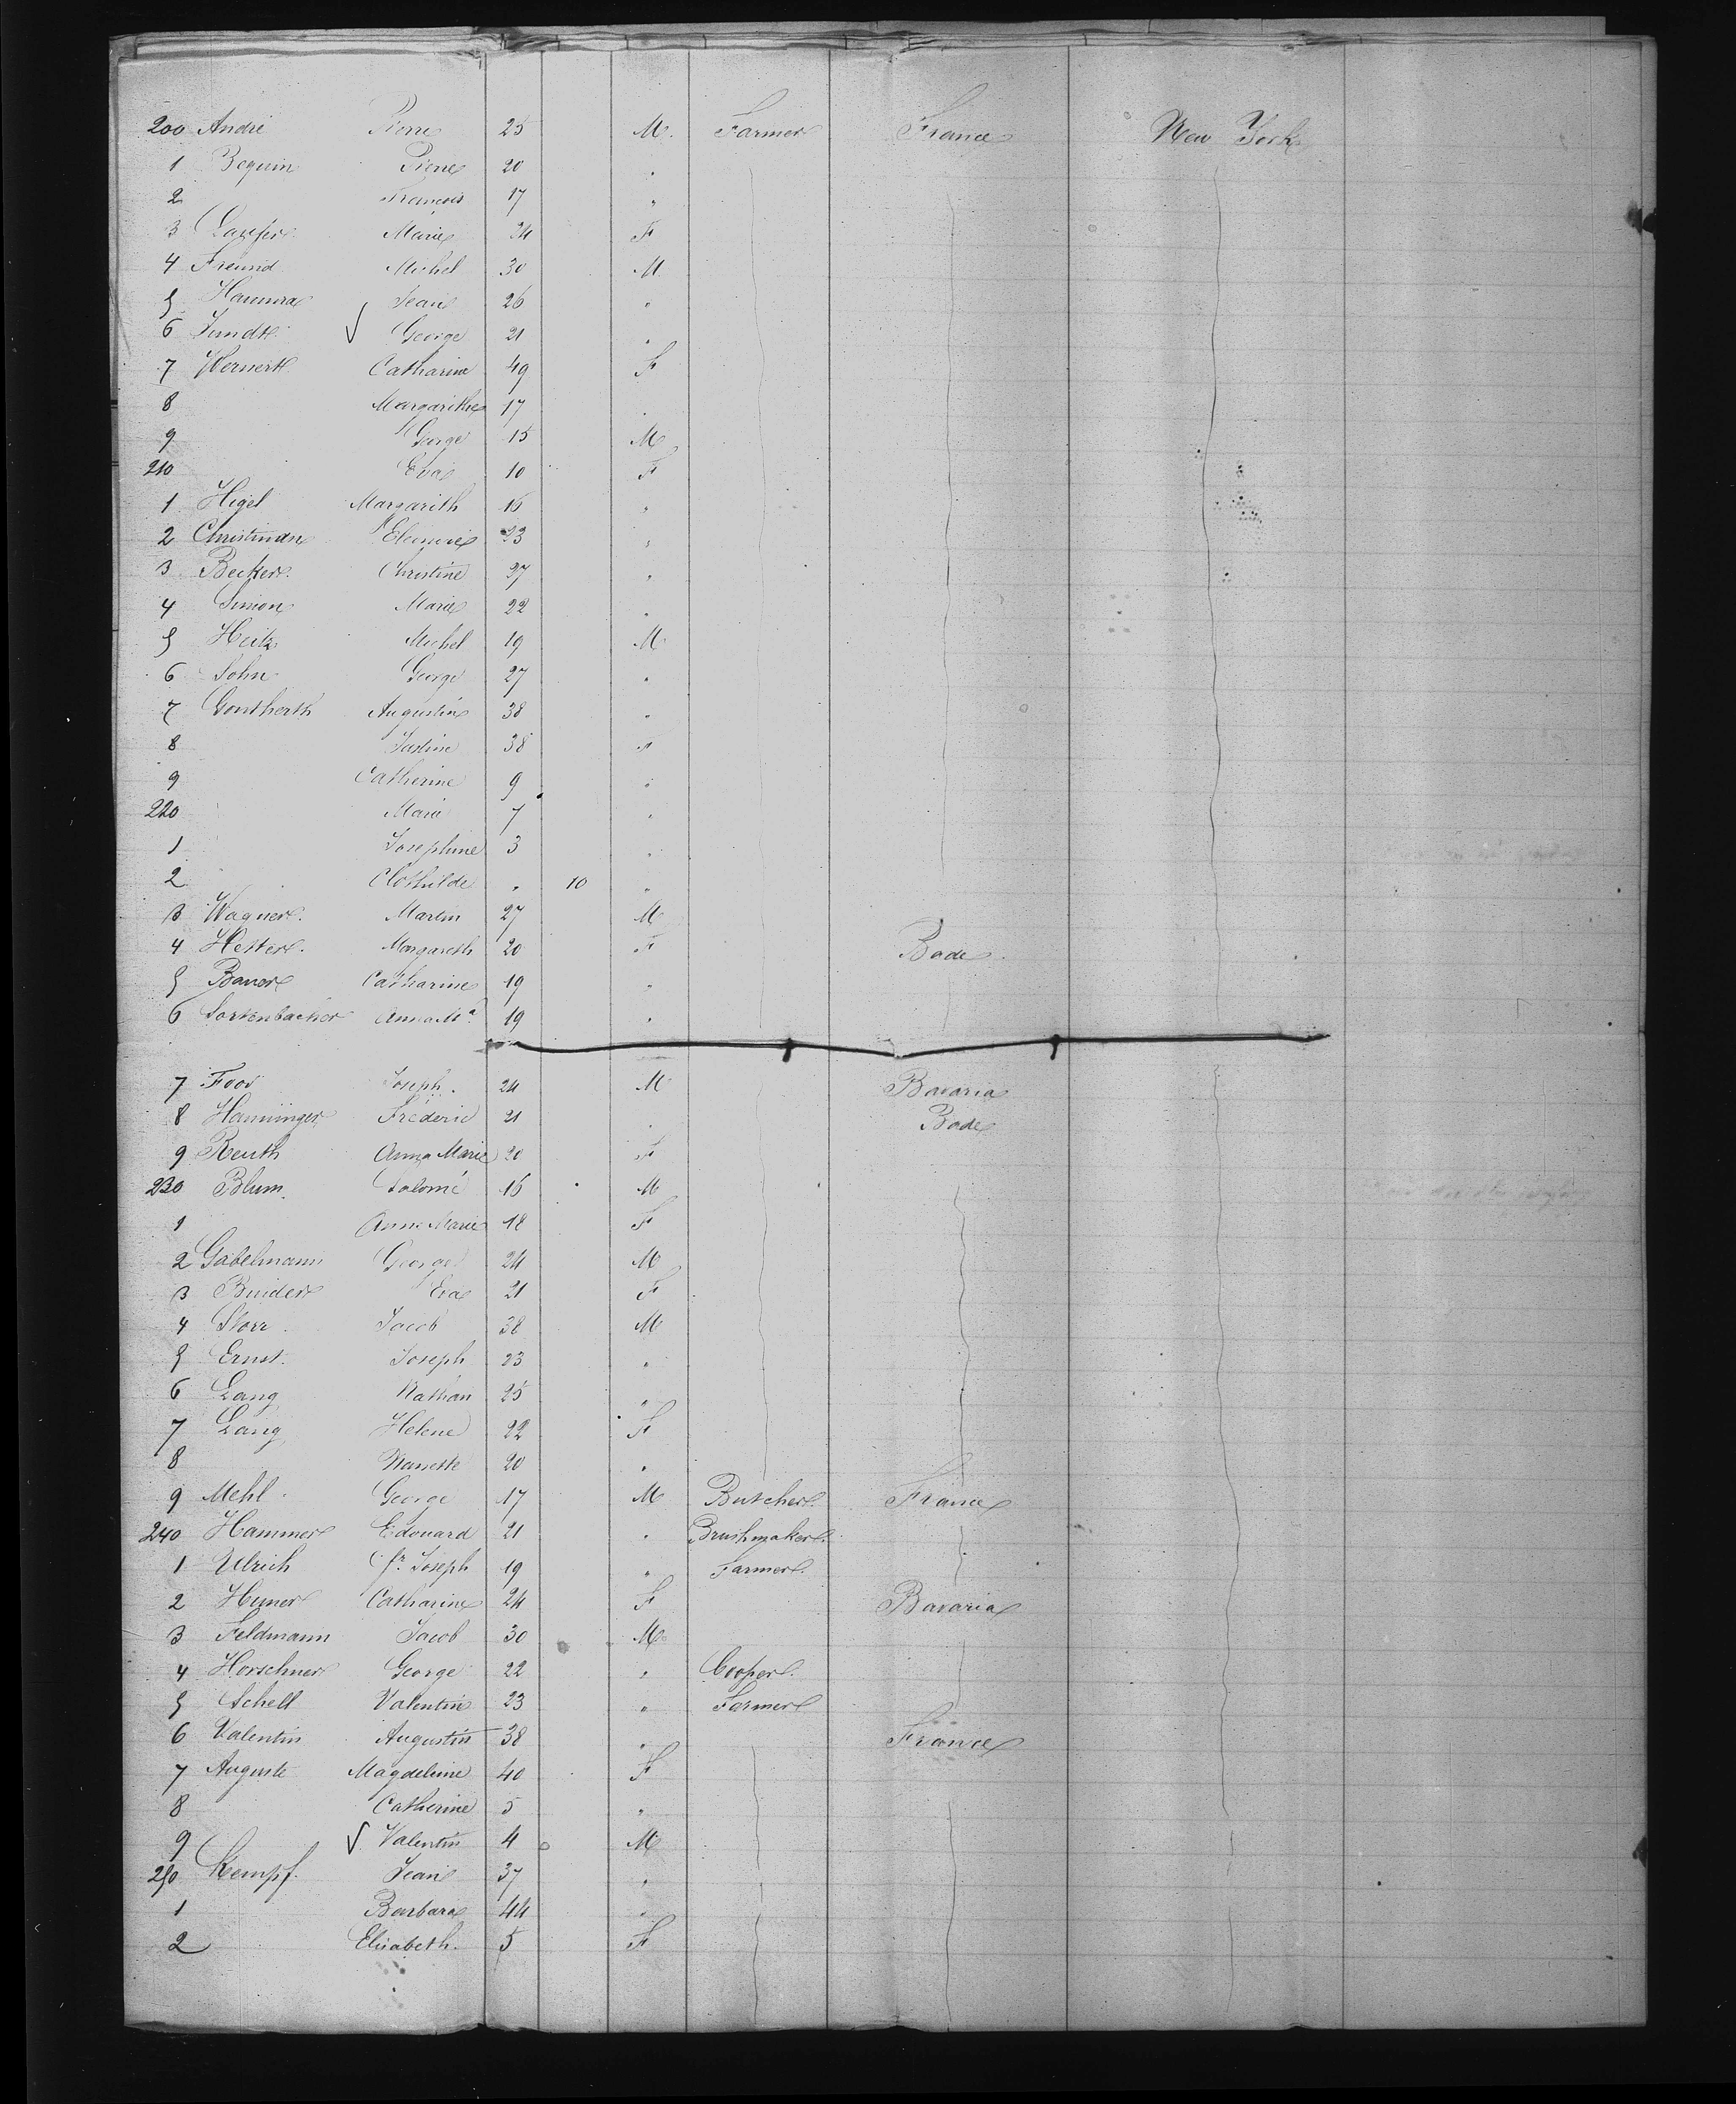 200 André Pierre 25 M. Farmer France New York
1 Bequin Pierre 20 "
2 François 17 "
3 Marie 24 F
4 Freund Michel 30 M
5 Jean 26 "
6 Jundt √ George 21 "
7 Wernert Catharine 49 F
8 Margarithe 17 "
9 George 15 M
210 Eva 10 F
1 Higel Margarith 16 "
2 Christmann Eleonore 23 "
3 Becker Christine 37 "
4 Simon Marie 22 "
5 Heitz Michel 19 M
6 Sohn George 27 "
7 Gontherth Augustin 38 "
8 Justine 38 F
9 Catherine 9 "
220 Marie 7 "
1 Josephine 3 "
2 Clothilde " 10 "
3 Wagner Martin 27 M
4 Hetter Margareth 20 F Bade
5 Bauer Catharine 19 "
6 Anna Ma 19 "
7 Joseph 24 M Bavaria
8 Frederic 21 " Bade
9 Reuth Anna Marie 20 F
230 Blum Salomé 16 M
1 Anne Marie 18 F
2 Gabelmann George 24 M
3 Binder Eva 21 F
4 Storz Jacob 38 M
5 Ernst Joseph 23 "
6 Lang Nathan 25 "
7 Lang Helene 22 F
8 Nanette 20 "
9 Mehl George 17 M Butcher France
240 Hammer Edouard 21 " Brushmaker
1 Ulrich fr. Joseph 19 " Farmer
2 Huner Catharine 24 F Bavaria
3 Feldmann Jacob 30 M
4 Horschner George 22 " Cooper
5 Schell Valentin 23 " Farmer
6 Valentin Augustin 38 " France
7 Auguste Magdeleine 40 F
8 Catherine 5 "
9 √ Valentin 4 M
250 Kempf Jean 37 "
1 Barbara 44 "
2 Elisabeth 5 F